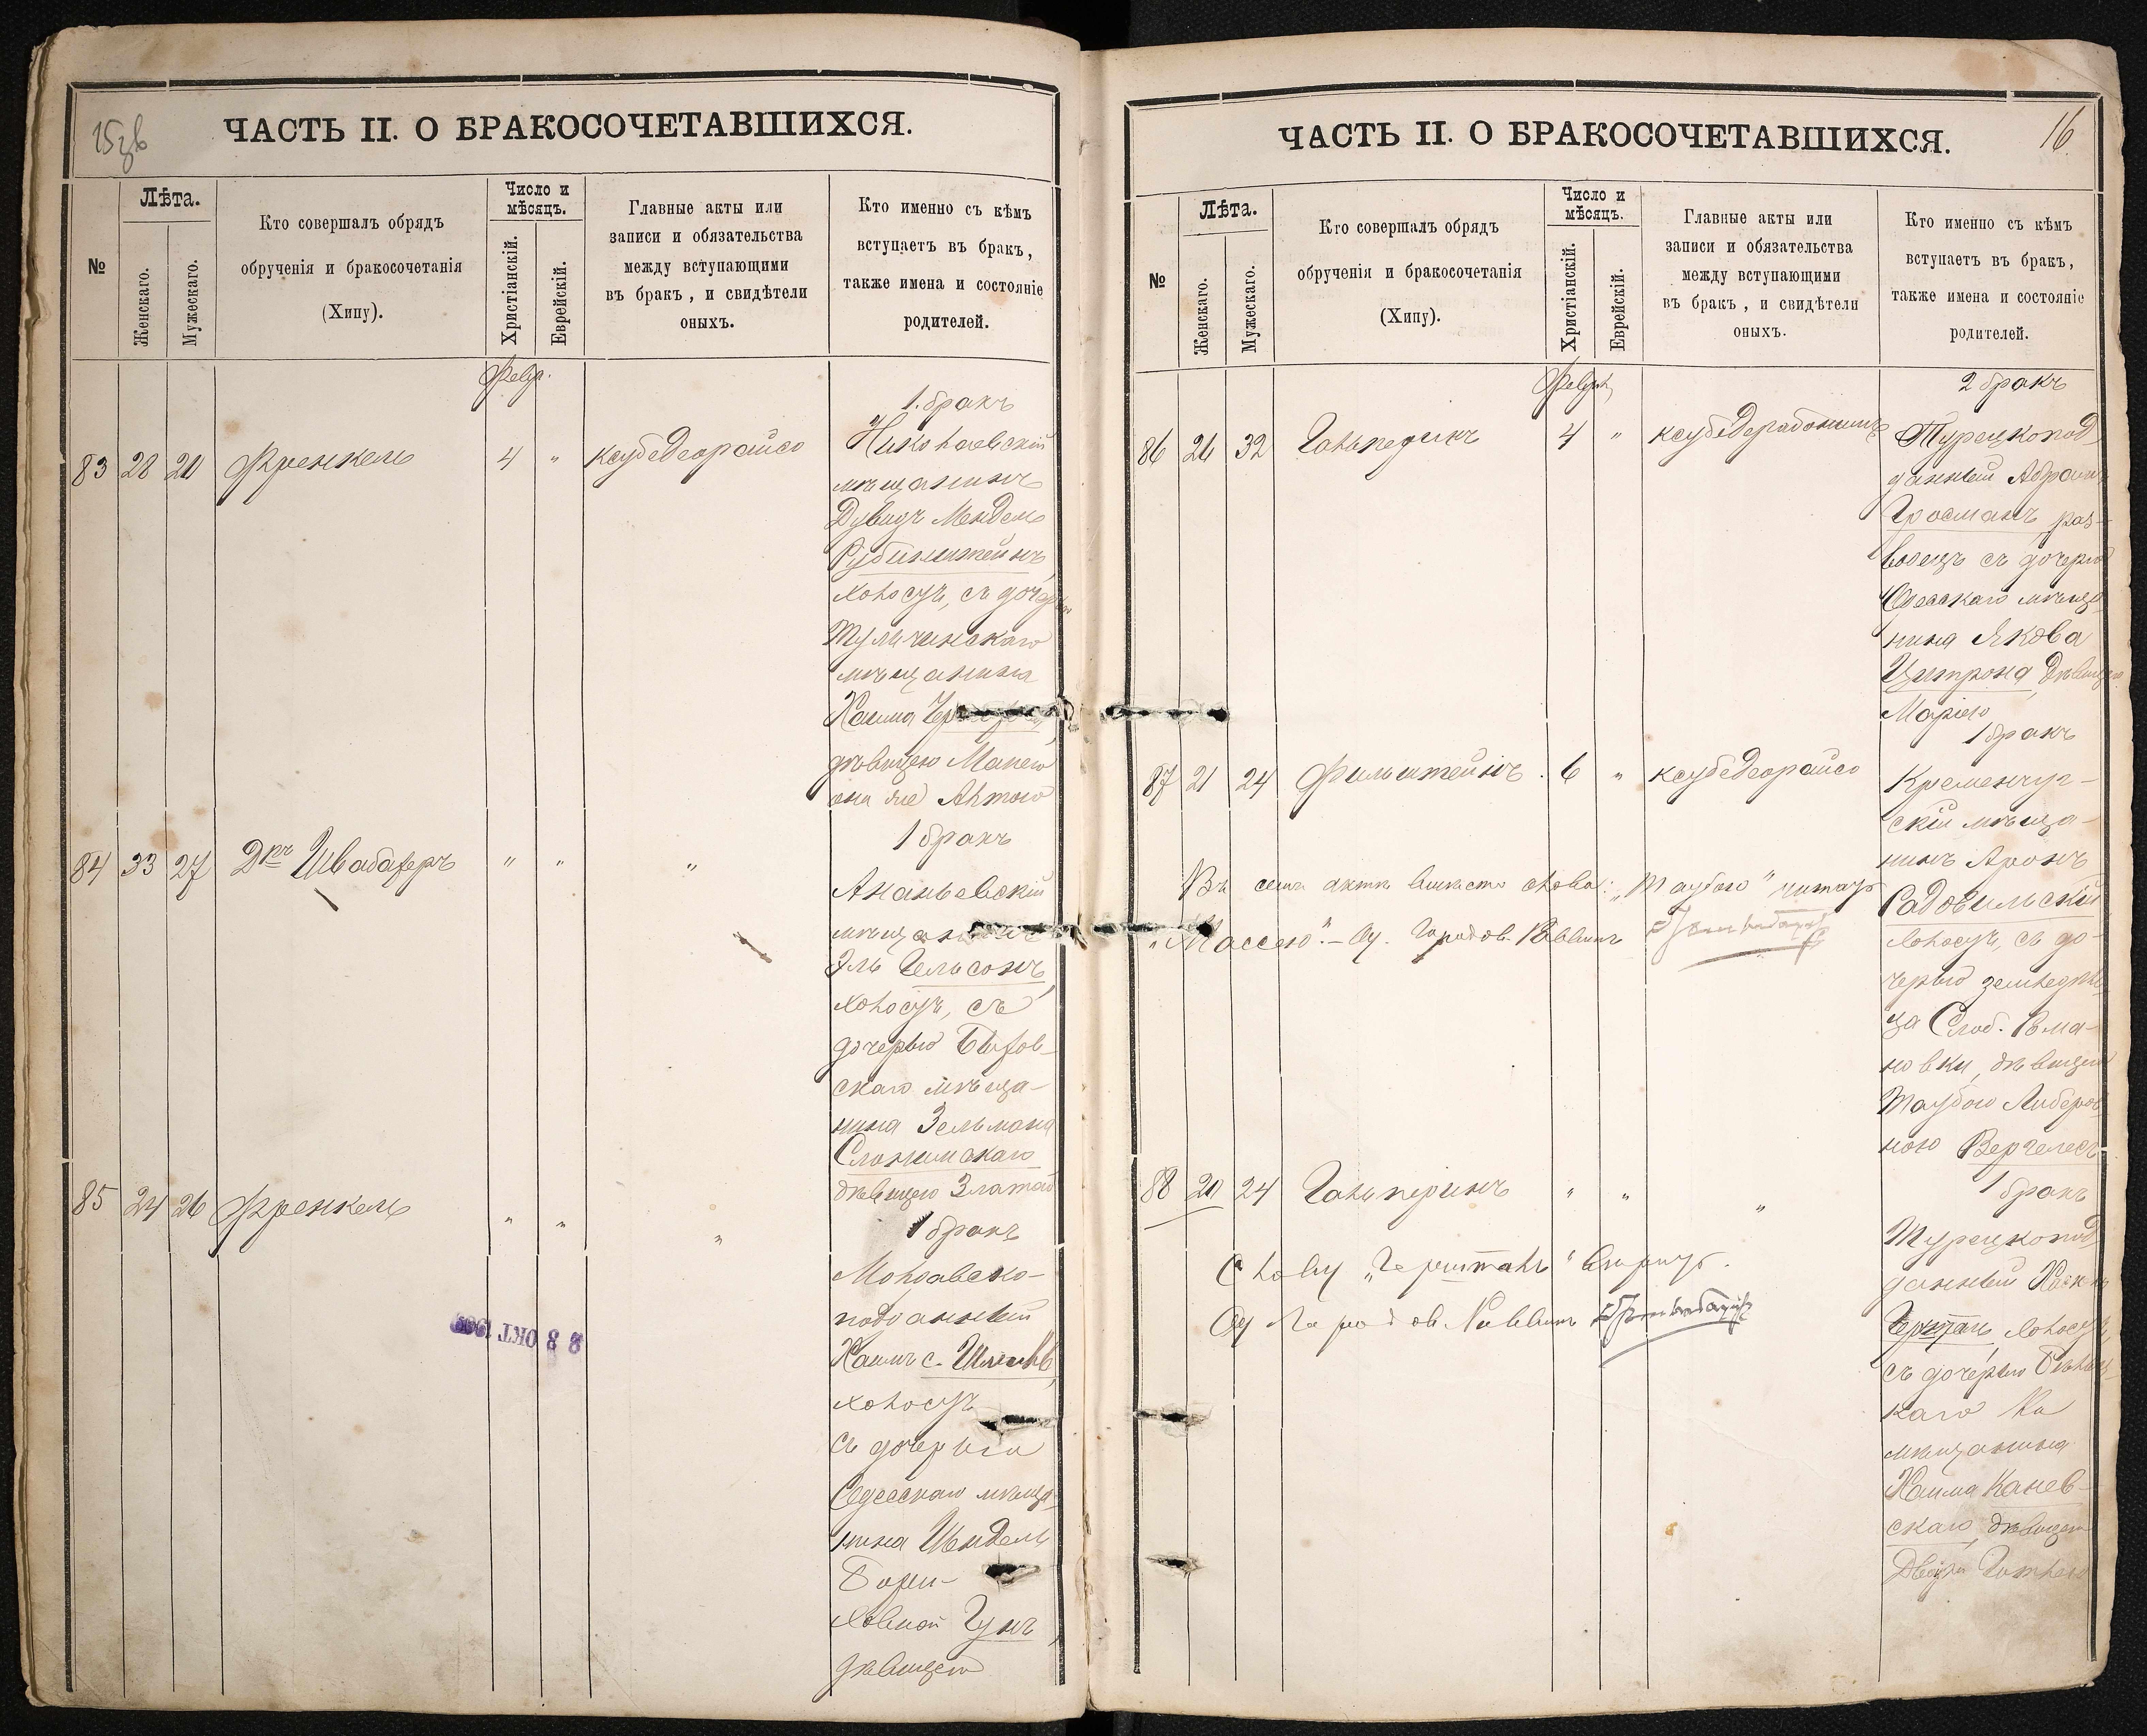 15 об
ЧАСТЬ II. О БРАКОСОЧЕТАВШИХСЯ.
№
Лѣта.
Женскаго.
Мужескаго.
Кто совершалъ обрядъ
обрученія и бракосочетанія
(Хипу).
Число и
мѣсяцъ.
Христіанскій.
Еврейскій.
Главные акты или
записи и обязательства
между вступающими
въ бракъ, и свидѣтели
оныхъ.
Кто именно съ кѣмъ
вступаетъ въ бракъ,
также имена и состояніе
родителей.
Февр.
1. бракъ
83 28 20 Френкель 4 " ксубедеорайсо
Николаевскій
мѣщанинъ
Дувидъ Мендель
Рубинштейнъ,
холостъ, съ дочерью
Тульчинскаго
мѣщанина
Хаима
дѣвицею Манею
она же
1 бракъ
84 33 27 Дръ Швабахеръ " " "
Ананьевскій
Эль Гельсонъ,
холостъ, съ
дочерью Быхов-
скаго мѣща-
нина Зельмана
Слонимскаго
дѣвицею Златой
1 бракъ
85 24 26 Френкель " " "
Молдавско-
подданный
Хаимъ с.
холостъ
съ дочерью
Одесскаго мѣща-
нина
дѣвицею
2 8 ОКТ 19
ЧАСТЬ II. О БРАКОСОЧЕТАВШИХСЯ.
16
№
Лѣта.
Женскаго.
Мужескаго.
Кто совершалъ обрядъ
обрученія и бракосочетанія
(Хипу).
Число и
мѣсяцъ.
Христіанскій.
Еврейскій.
Главные акты или
записи и обязательства
между вступающими
въ бракъ, и свидѣтели
оныхъ.
Кто именно съ кѣмъ
вступаетъ въ бракъ,
также имена и состояніе
родителей.
2 бракъ
86 26 32 Гальперинъ 4 "
Турецкопод
данный Абрамъ
Гросманъ, раз-
водецъ съ дочерью
Одесскаго мѣща
нина Якова
Цитрона, дѣвицею
Маріею
1 бракъ
87 21 24 Фильштейнъ. 6 " ксубедеорайсо
Кременчуг-
скій мѣща-
нинъ Аронъ
Садовильскій
холостъ, съ до-
черью земледѣль
ца Слоб. Рома-
новки, дѣвицею
Таубою Либеров
ною Вергелесъ
Въ семъ актѣ вмѣсто слова: „Таубою" читать
„Массею". – Од. Городов. Раввинъ
1 бракъ
88 20 24 Гальперинъ " " "
Турецкопод
данный
холостъ,
съ дочерью
каго
мѣщанина
Хаима Канев-
скаго, дѣвицею
Слову вѣрить.
Од Городов Раввинъ